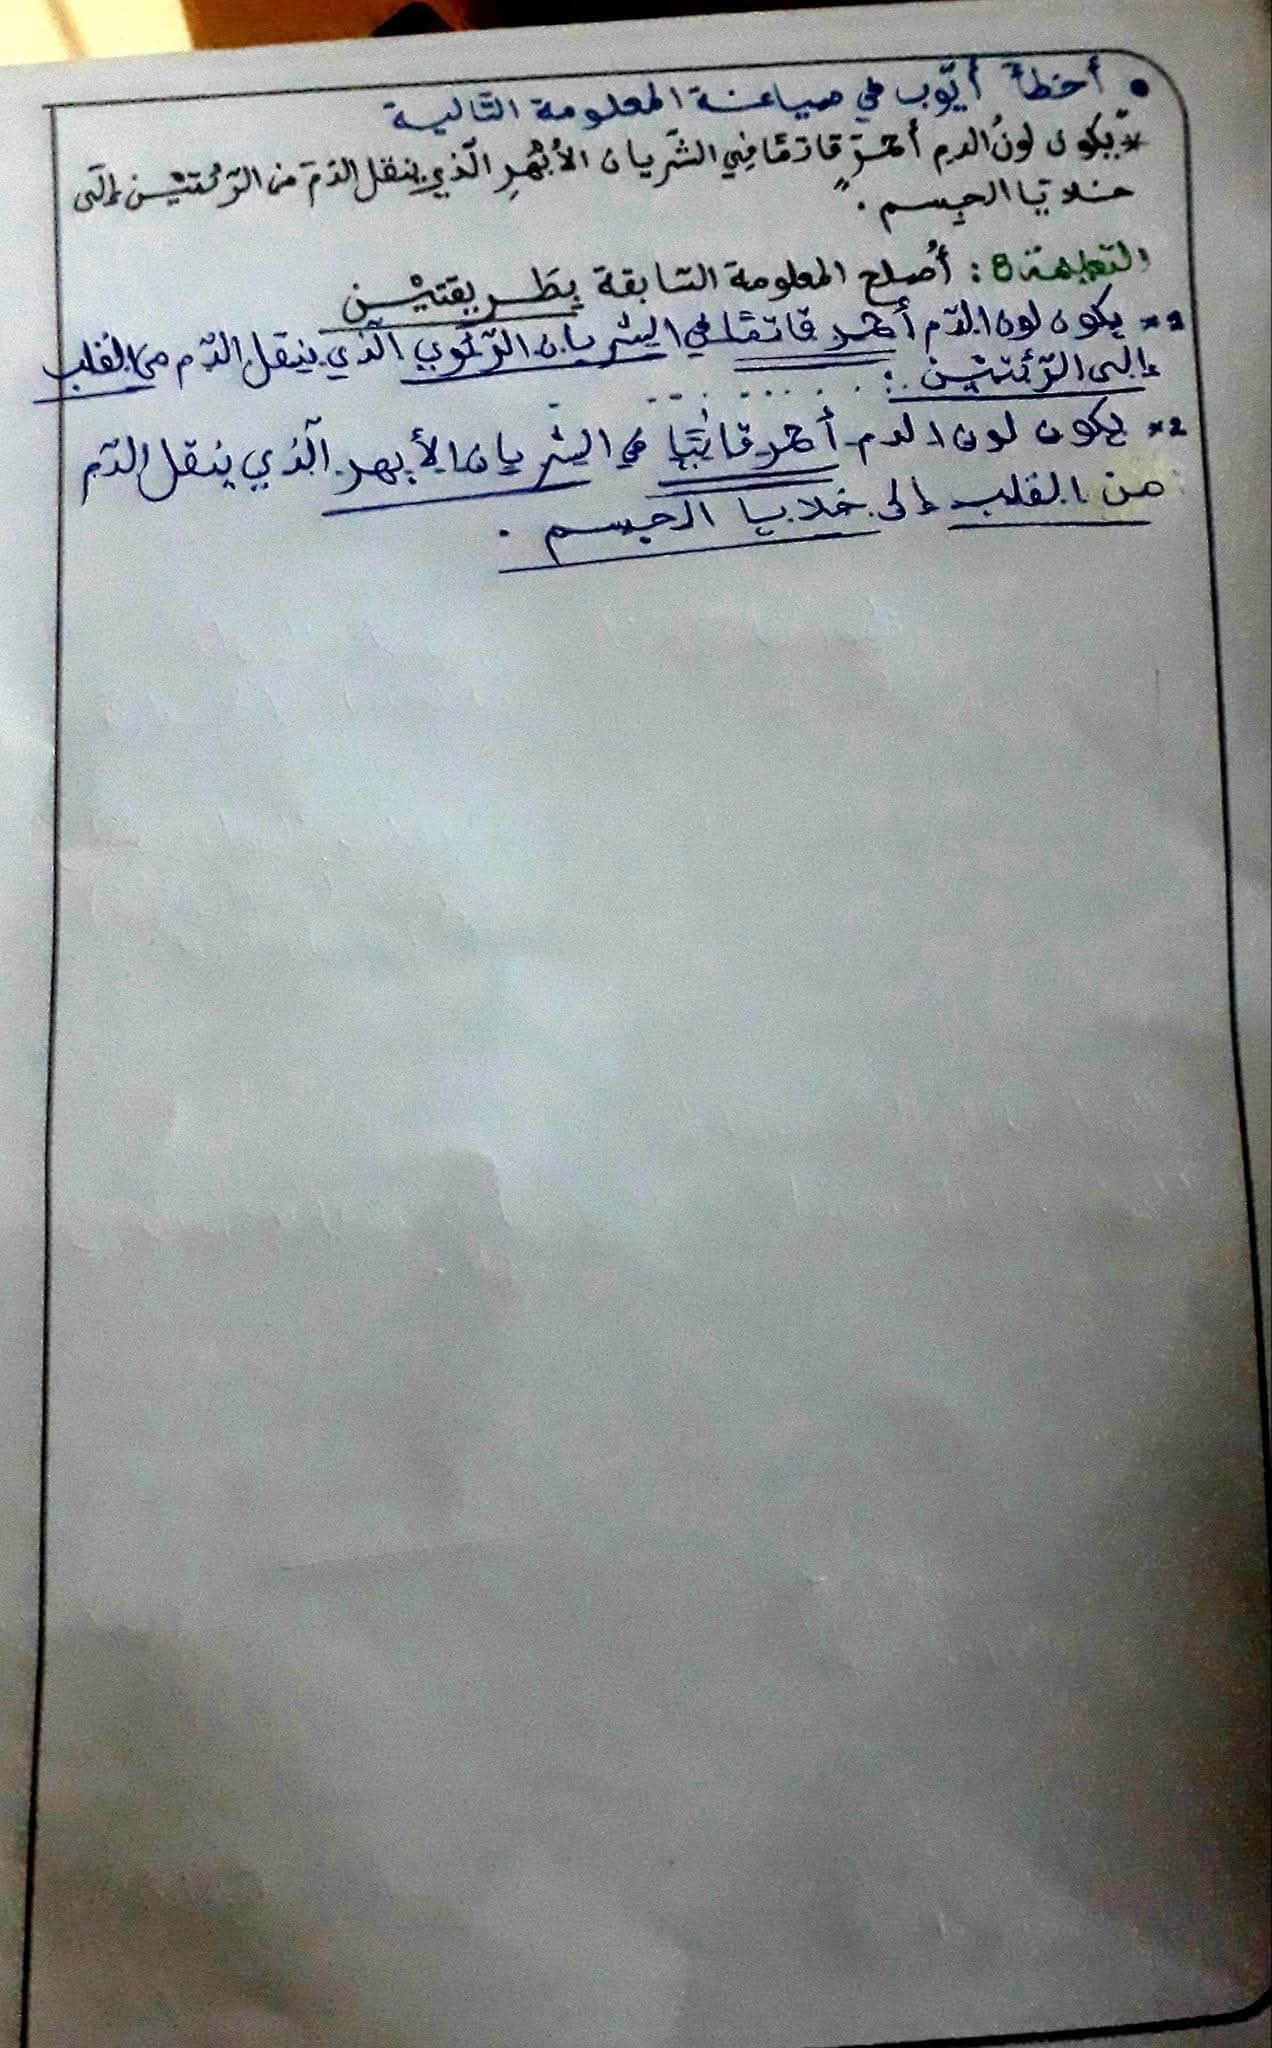 • أخطأ أيّوب في صياغة المعلومة التّالية
* "يكون لونُ الدم أحمرَ قاتمًا في الشّريان الأبْهَرِ الّذي ينقل الدّمَ من الرّئتيْن إلَى
خلايَا الجِسم."
التعليمة 8: أُصلح المعلومة السّابقة بِطَريقتيْن
1* يكون لون الدّم أحمر قاتمًا في الشريان الرّئوي الّذي ينقل الدّم من القلب
إلى الرّئتيْن.
2* يكون لون الدم أحمر قانيًا في الشريان الأبهر الّذي ينقل الدّم
من القلب إلى خلايا الجسم.